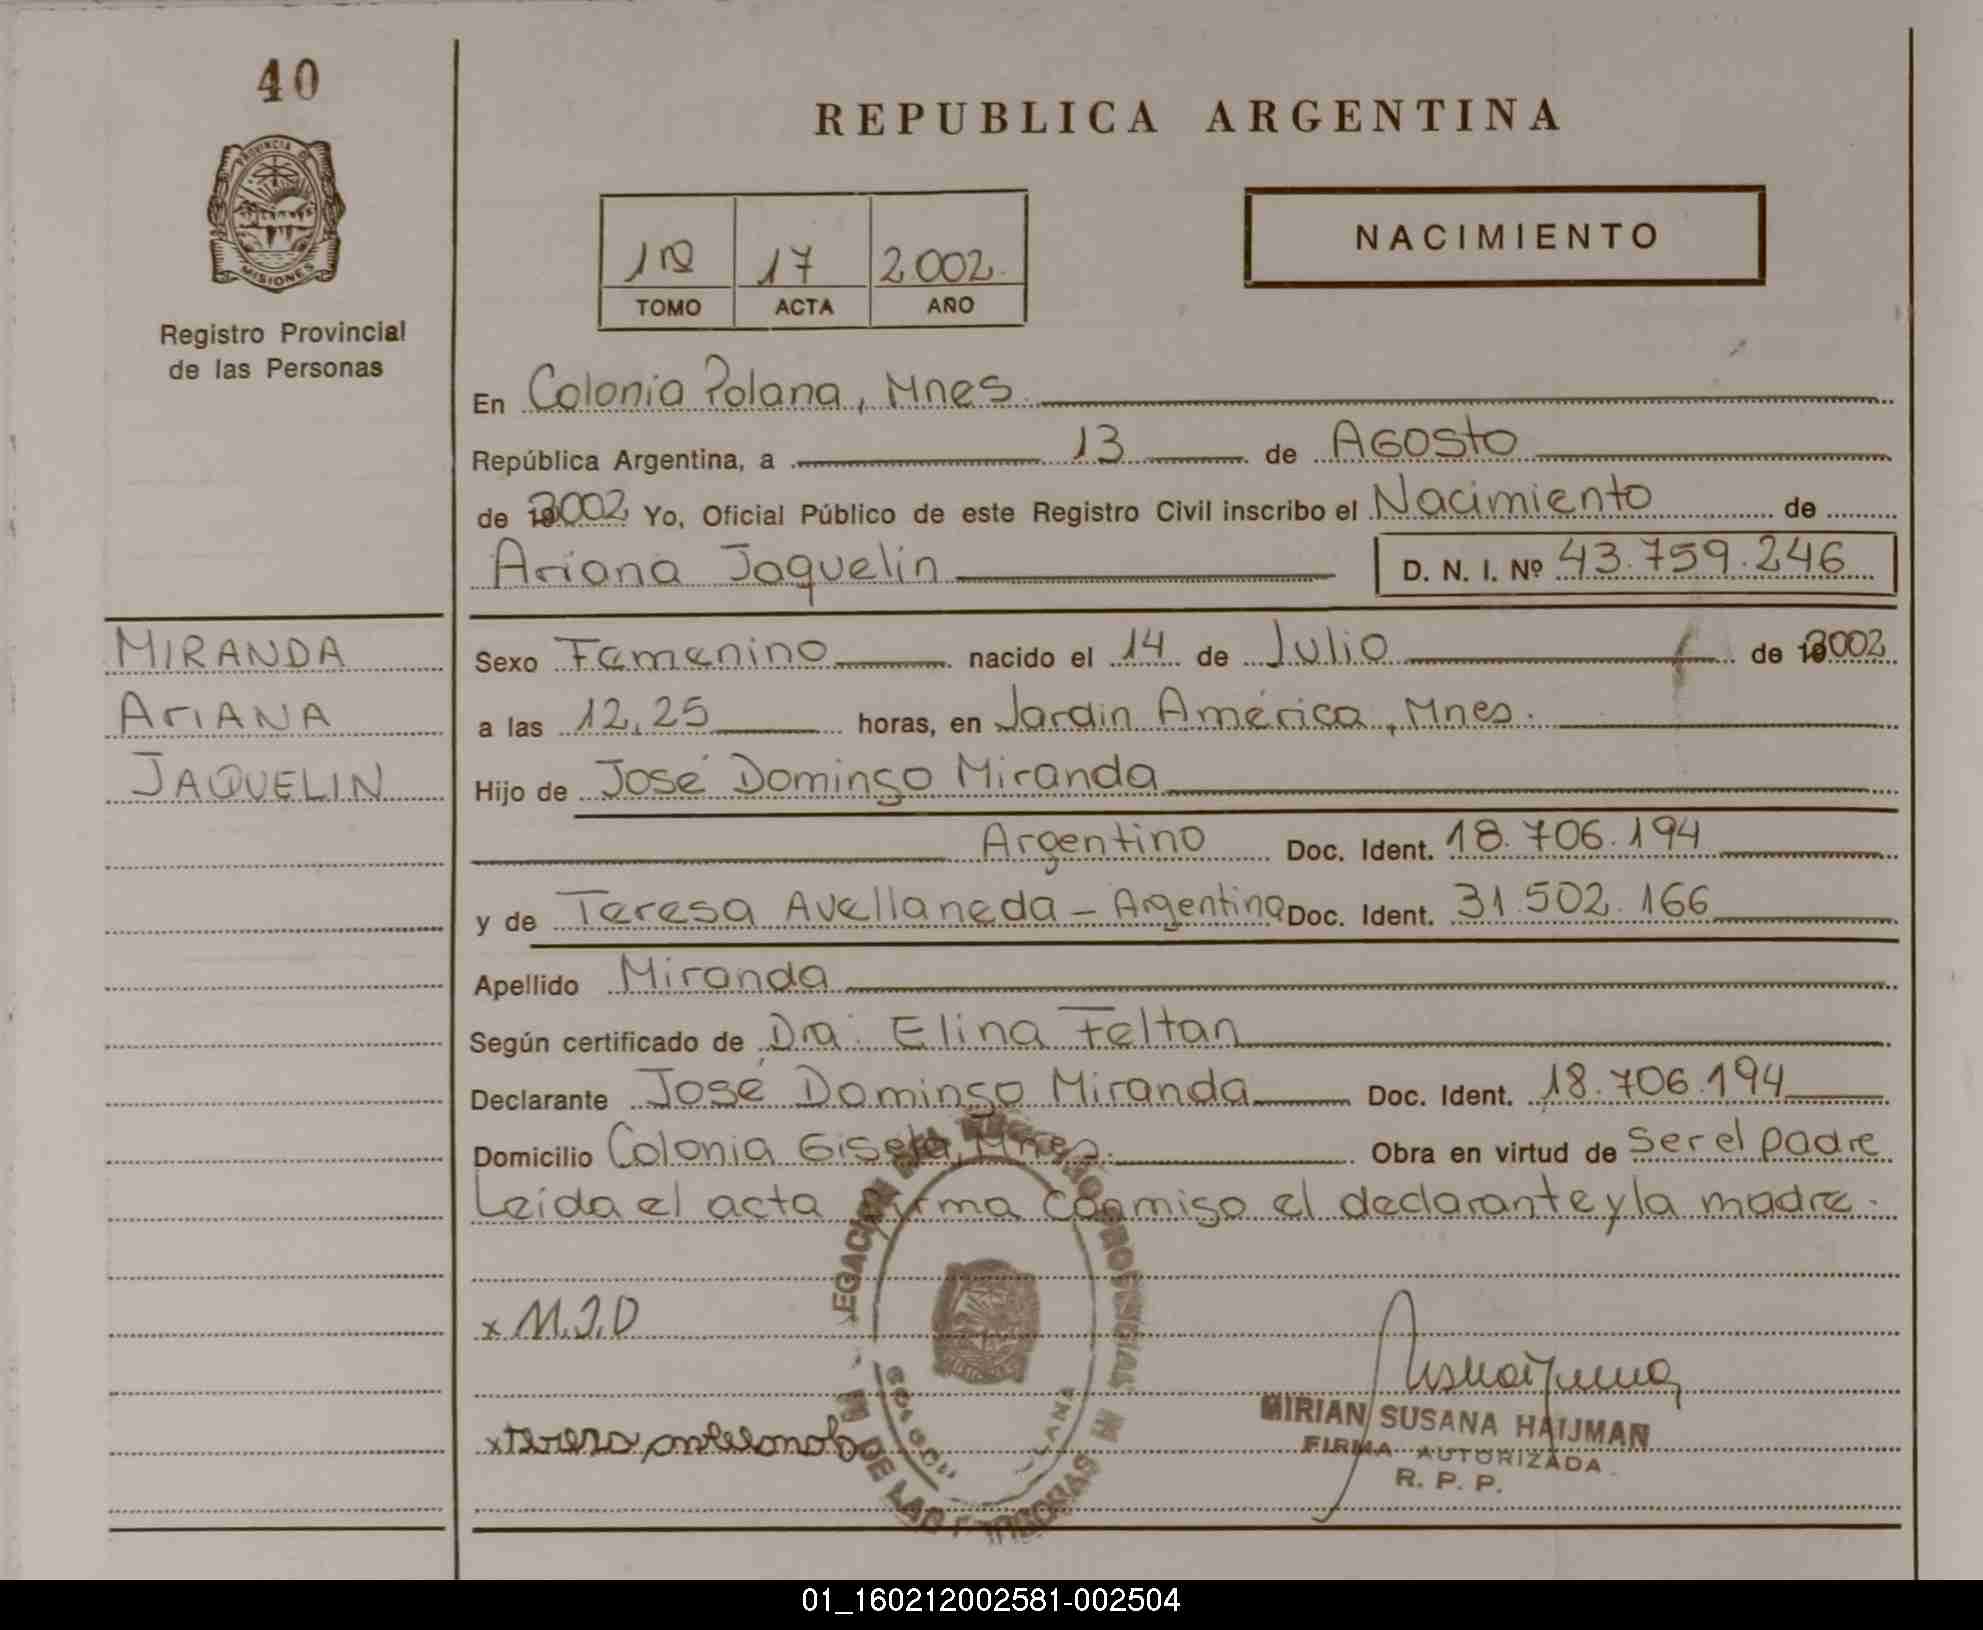 40
PROVINCIA DE
MISIONES
Registro Provincial
de las Personas
REPUBLICA ARGENTINA
NACIMIENTO
1º 17 2.002
TOMO ACTA AÑO
En Colonia Polana, Mnes.
República Argentina, a 13 de Agosto
de 2002 Yo, Oficial Público de este Registro Civil inscribo el Nacimiento de
Ariana Jaquelin D. N. I. Nº 43.759.246
MIRANDA
ARIANA
JAQUELIN
Sexo Femenino nacido el 14 de Julio de 2002
a las 12,25 horas, en Jardin América, Mnes.
Hijo de José Domingo Miranda
Argentino Doc. Ident. 18.706.194
y de Teresa Avellaneda - Argentina Doc. Ident. 31.502.166
Apellido Miranda
Según certificado de Dra. Elina Feltan
Declarante José Domingo Miranda Doc. Ident. 18.706.194
Domicilio Colonia Gisela, Mnes. Obra en virtud de Ser el padre
Leida el acta firma conmigo el declarante y la madre.
x M.J.D
MIRIAN SUSANA HAIJMAN
FIRMA AUTORIZADA
R. P. P.
01_160212002581-002504